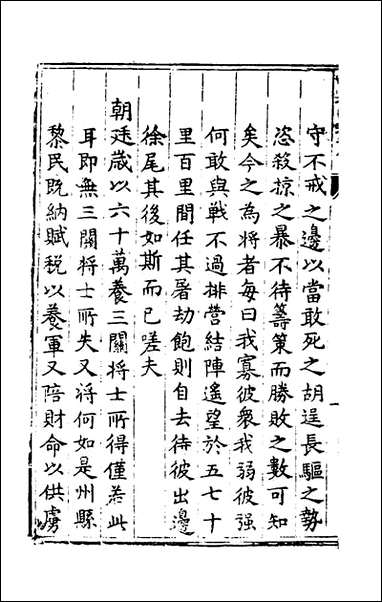 守不戒之邊以當敢死之胡逞長驅之勢
恣殺掠之暴不待籌策而勝敗之數可知
矣今之為將者每曰我寡彼衆我弱彼强
何敢與戰不過排營結陣遙望於五七十
里百里間任其屠劫飽則自去待彼出邊
徐尾其後如斯而已嗟夫
朝廷歲以六十萬養三關將士所得僅若此
耳即無三關將士所失又将何如是州縣
黎民既納賦税以養軍又陪財命以供虜